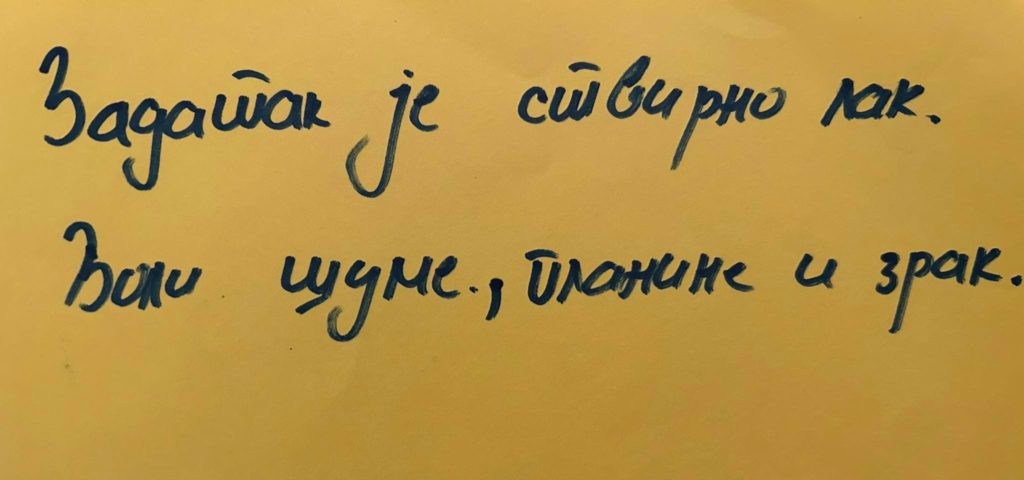 Задатак је ствирно лак.
Воли шуме., планине и зрак.